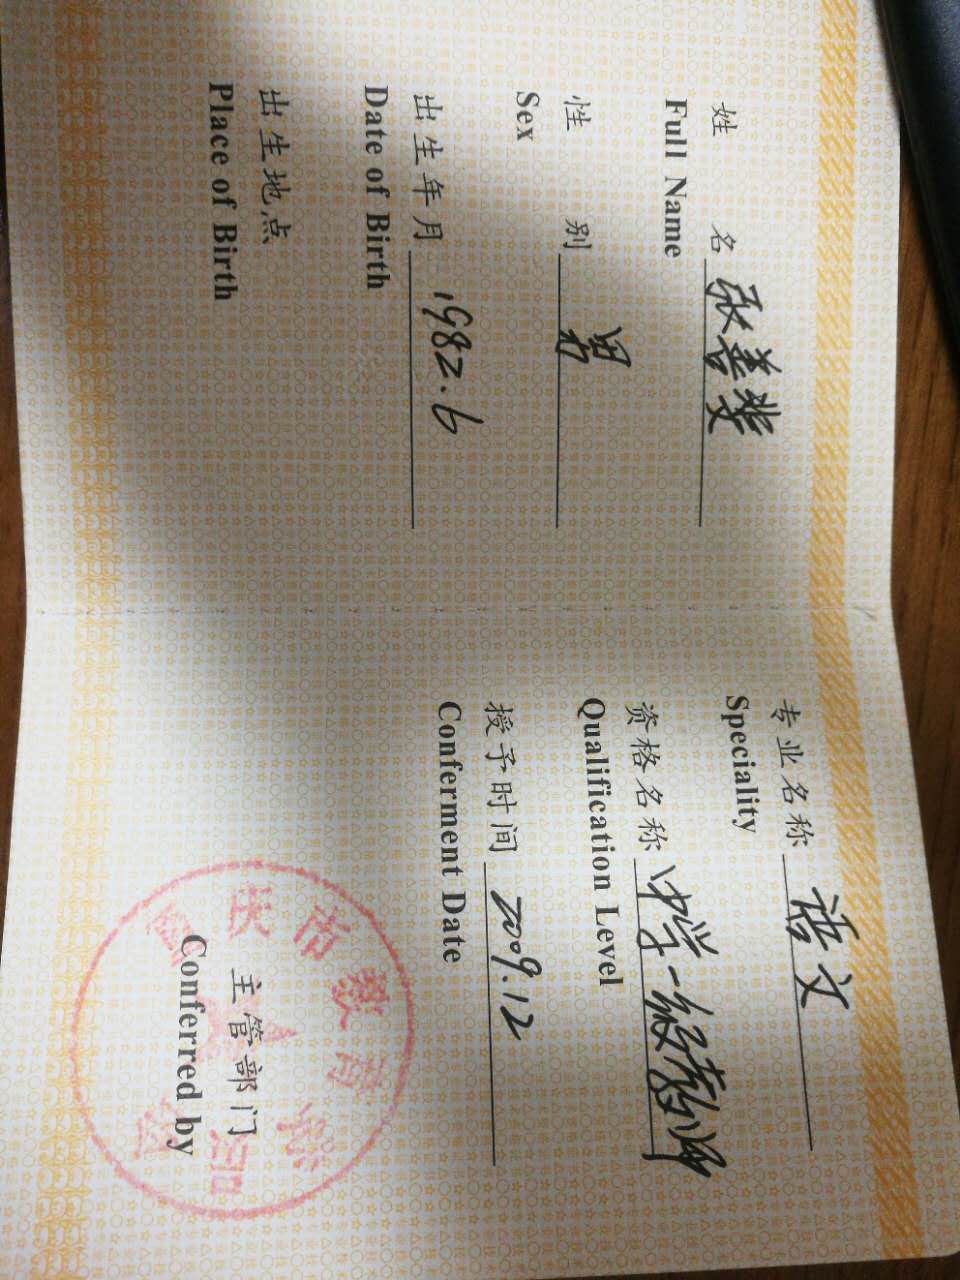 姓 名 张善斐
Full Name
性 别 男
Sex
出生年月 1982.6
Date of Birth
出生地点
Place of Birth
专业名称 语文
Speciality
资格名称 中学一级教师
Qualification Level
授予时间 2009.12
Conferment Date
主管部门
Conferred by